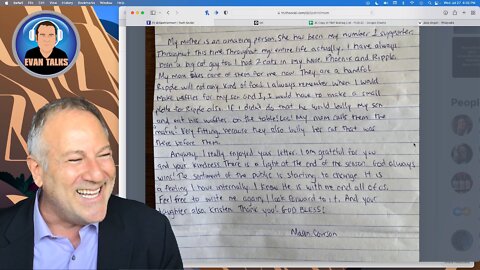 EVAN TALKS
My mother is an amazing person. She has been my number 1 supporter
Throughout this time. Throughout my entire life actually. I have always
been a big cat guy too! I had 2 cats in my house. Phoenix and Ripple.
My mom takes care of them for me now. They are a handful.
Ripple will eat any kind of food. I always remember when I would
make waffles for my son and I, I would have to make a small
plate for Ripple also. If I didn't do that he would bully my son
and eat his waffles on the table! LOL! My mom calls them the
mafia! Very fitting, because they also bully her cat that was
there before them.
Anyway, I really enjoyed your letter. I am grateful for you
and your kindness. There is a light at the end of the season. God always
wins! The sentiment of the public is starting to change. It is
a feeling I have internally. I know He is with me and all of us.
Feel free to write me again, I look forward to it. And your
daughter also, Kristen. Thank you! GOD BLESS!
Mason Courson
Peopl